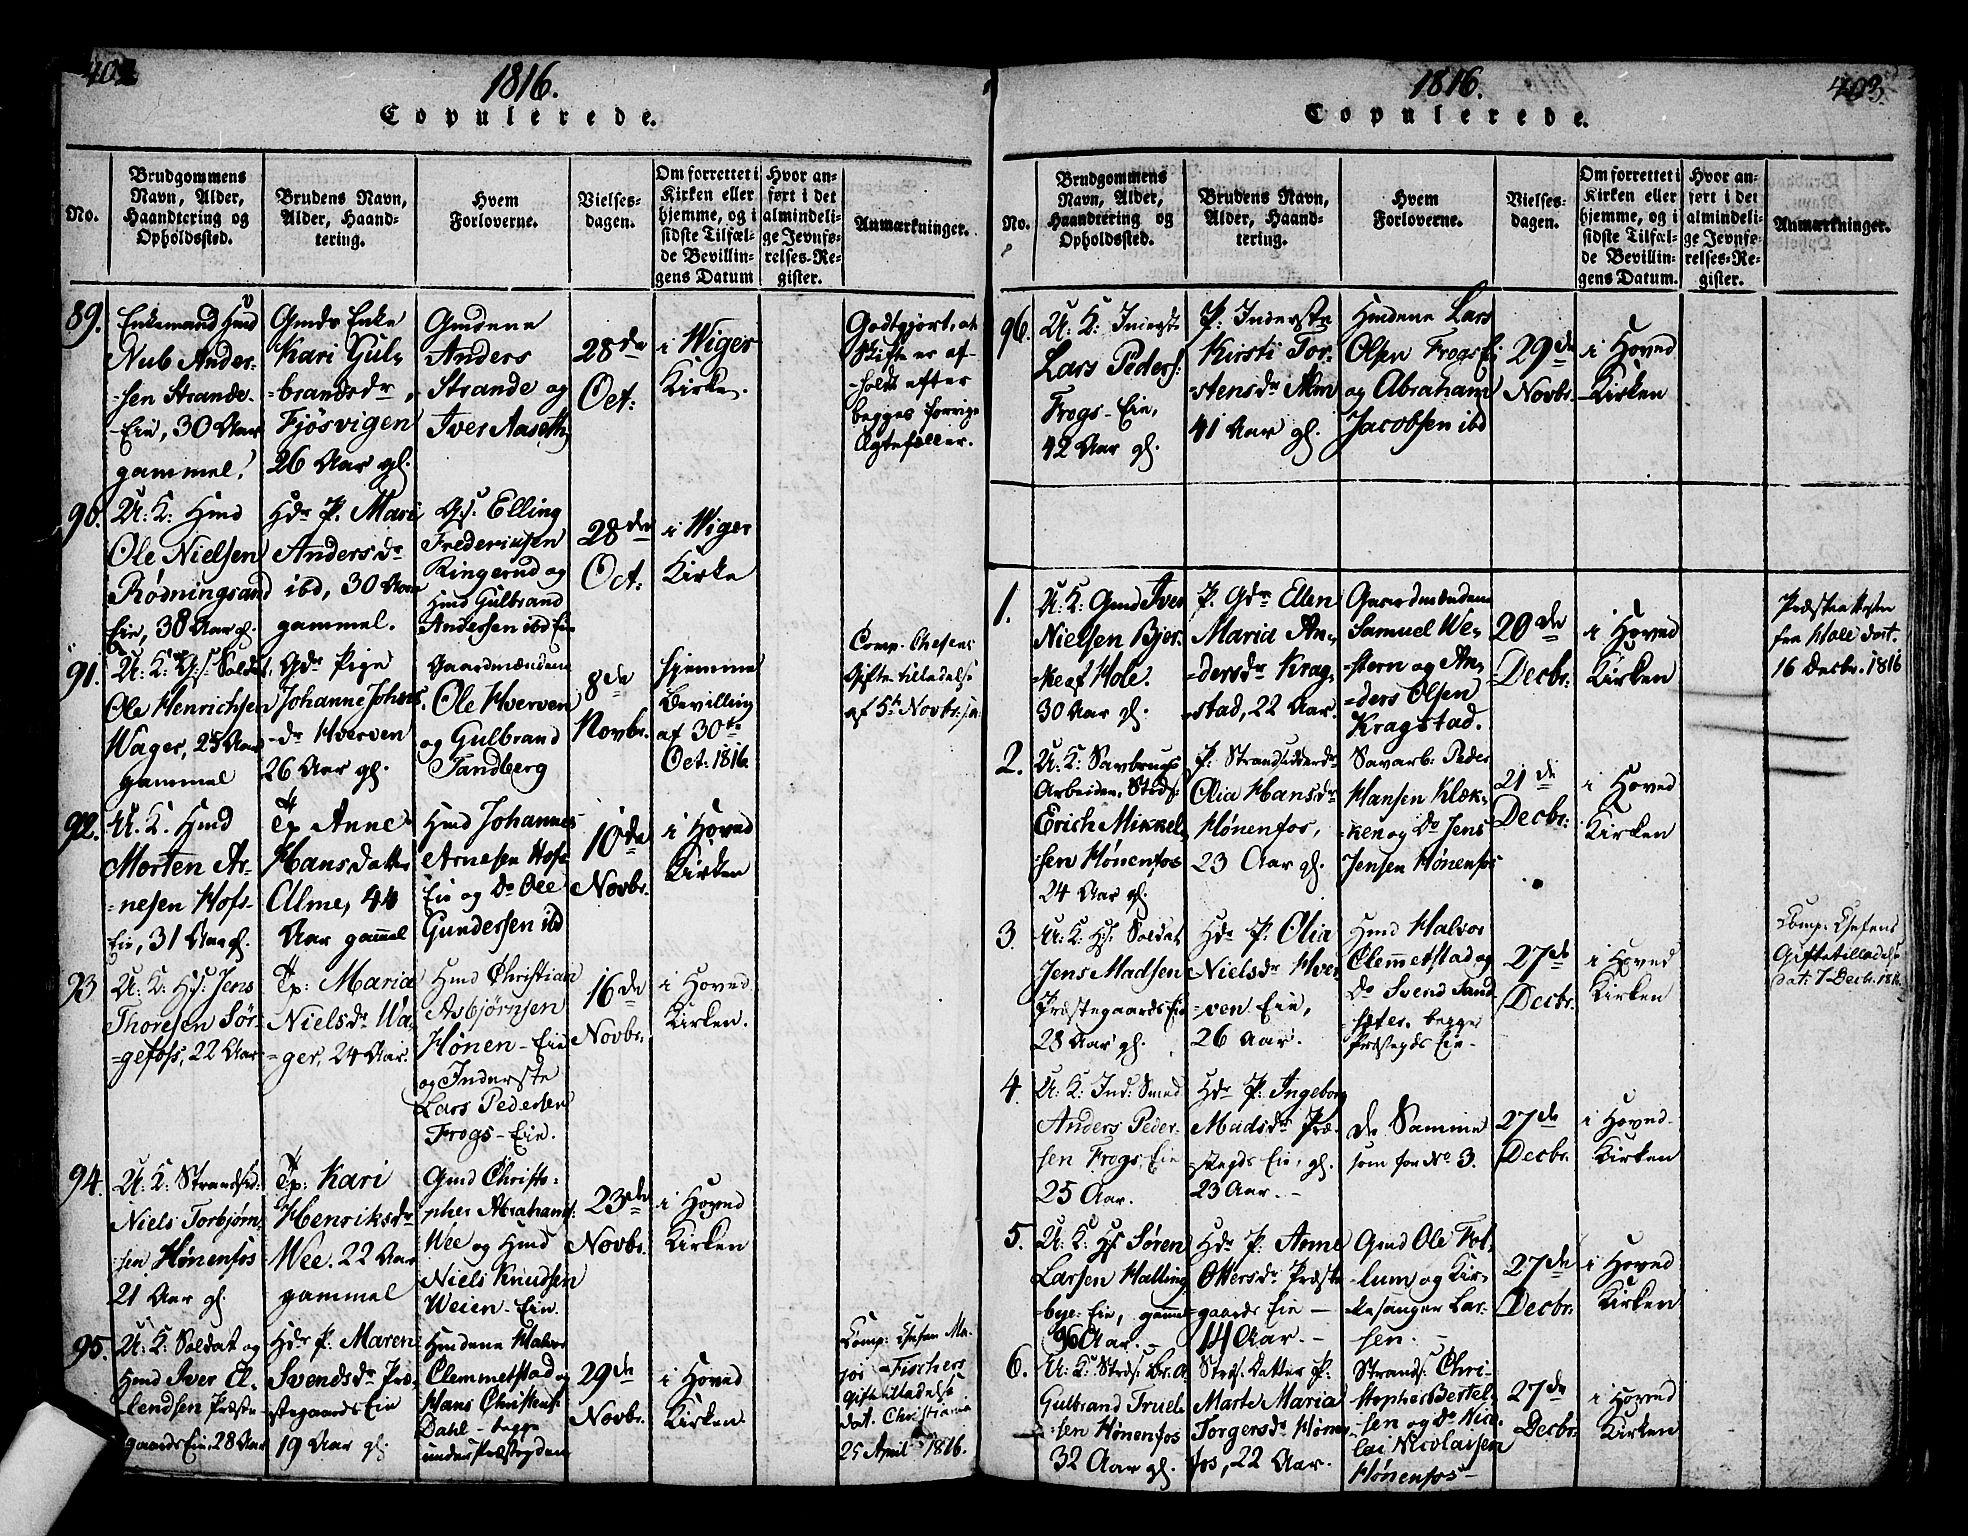 402
1816.
Copulerede.
No.
Brudgommens
Navn, Alder,
Haandtering og
Opholdssted.
Brudens Navn,
Alder, Haand-
tering.
Hvem
Forloverne.
Vielses-
dagen.
Om forrettet i
Kirken eller
hjemme, og i
sidste Tilfæl-
de Bevillin-
gens Datum
Hvor an-
ført i det
almindeli-
ge Jevnfø-
relses-Re-
gister.
Anmærkninger.
89.
Enkemand Hmd
Nub Ander-
sen Strande-
Eie, 30 Aar
gammel.
Gmds Enke
Kari Gul-
brandsdr,
Fjösvigen
26 Aar gl.
Gmdene
Anders
Strande og
Iver Aaseth
28de
Oct:
i Wiger
Kirke.
Godtgjort, at
Skifte er af-
holdt efter
begges forrige
Ægtefæller.
90.
U: K: Hmd
Ole Nielsen
Rödningsand
Eie, 38 Aar gl.
Hdr P. Mari
Andersdr
ibd, 30 Aar
gammel.
G:s: Elling
Frederiksen
Ringerud og
Hmd Gulbrand
Andersen ibd Eie
28de
Oct:
i Wiger
Kirke
91.
U: K: G:s: Soldat
Ole Henrichsen
Wager, 25 Aar
gammel
Gdr Pige
Johanne Johans-
dr Hverven
26 Aar gl.
Gaardmændene
Ole Hverven
og Gulbrand
Tandberg
8de
Novbr.
hjemme
Bevilling
af 30te
Oct: 1816
Comp. Chefens
Giftetilladelse
af 5te Novbr:
92.
U. K. Hmd
Morten Ar-
nesen Hofs-
Eie, 31 Aar gl.
Tp Anne
Hansdatter
Alme, 44
Aar gammel
Hmd Johannes
Arnesen Hofs
Eie og Do Ole
Gundersen ibd
10de
Novbr.
i Hoved
Kirken
93
U: K: H:s: Jens
Thoresen Sör-
gefoss, 22 Aar
Tp: Maria
Nielsdr Wa-
ger, 24 Aar.
Hmd Christian
Asbjørnsen
Hønen-Eie
og Inderste
Lars Pedersen
Frogs-Eie.
16de
Novbr:
i Hoved
Kirken.
94.
U: K: Strandsid:
Niels Torbjørn-
sen Hønenfos
21 Aar gl.
Tp: Kari
Henriksdr
Wee. 22 Aar
gammel
Gmd Christo-
pher Abrahams:
Wee og Hmd
Niels Knudsen
Weien-Eie.
23de
Novbr.
i Hoved
Kirken
95.
U: K: Soldat og
Hmd Iver El-
lendsen Præste-
gaards Eie, 28 Aar
Hdr P. Maren
Svendsdr Præ-
stegaards Eie
19 Aar gl.
Hmdene Halvor
Clemmetstad og
Hans Christens:
Dahl - begge
under Præstegden
29de
Novbr.
i Hoved
Kirken.
Comp: Chefen Ma-
jor Fischers
Giftetilladelse
dat. Christiania
25 April 1816.
1816.
403.
Copulerede.
No.
Brudgommens
Navn, Alder,
Haandtering og
Opholdssted.
Brudens Navn,
Alder, Haand-
tering.
Hvem
Forloverne.
Vielses-
dagen.
Om forrettet i
Kirken eller
hjemme, og i
sidste Tilfæl-
de Bevillin-
gens Datum.
Hvor an-
ført i det
almindeli-
ge Jevnfø-
relses-Re-
gister.
Anmærkninger.
96.
U: K: Inderste
Lars Peders:
Frogs-Eie,
42 Aar gl.
P: Inderste
Kirsti Tor-
stensdr Moe
41 Aar gl.
Hmdene Lars
Olsen Frogs Ei
og Abraham
Jacobsen ibd
29de
Novbr.
i Hoved
Kirken
1.
U: K: Gmd Iver
Nielsen Bjer-
ke af Hole.
30 Aar gl.
P. Gdr Ellen
Maria An-
dersdr Krag-
stad, 22 Aar.
Gaardmændene
Samuel We-
stern og An-
ders Olsen
Kragstad.
20de
Decbr:
i Hoved
Kirken
Præsteattesten
fra Hole dat.
16 Decbr. 1816
2.
U: K: Savbrugs
Arbeider, Stds:
Erich Mikkel-
sen Hønenfos
24 Aar gl.
P. Strandsidderdr
Olia Hansdr
Hønenfos,
23 Aar gl.
Savarb: Peder
Hansen Klæk-
ken og Do Jens
Jensen Hønenfos
21de
Decbr:
i Hoved
Kirken
3.
U: K: H:s: Soldat
Jens Madsen
Præstegaards Eie
28 Aar gl.
Hdr P: Olia
Nielsdr Hver-
ven Eie,
26 Aar.
Hmd Halvor
Clemmetstad og
Do Svend Sand
sæter. begge
Præstegds Eie-
27de
Decbr.
i Hoved
Kirken
Comp. Chefens
Giftetilladelse
dat: 7 Decbr. 1816
4.
U: K: Ind: Smed
Anders Peder-
sen Frogs, Eie
25 Aar.
Hdr P: Ingeborg
Madsdr Præ-
stegds Eie, gl.
23 Aar. -
De Samme
som for No 3.
27de
Decbr.
i Hoved-
Kirken
5.
U: K: H:s Søren
Larsen Halling-
bye-Eie, gamel
Aar. -
Hdr P: Anne
Ottersdr Præste
gaards Eie -
Aar. -
Gmd Ole Fol-
lum og Kir-
kesanger Lar-
sen: -
27de
Decbr.
i Hoved
Kirken
6.
U: K: Strds: Br.
Gulbrand Truels-
sen Hønenfos
32 Aar gl.
Strds: Datter P.
Marte Maria
Torgersdr Hønen
fos, 22 Aar.
Strands: Chri-
stopher Bertel-
sen og Do Nico-
lai Nicolaisen
Hønenfos-
27de
Decbr:
i Hoved
Kirken